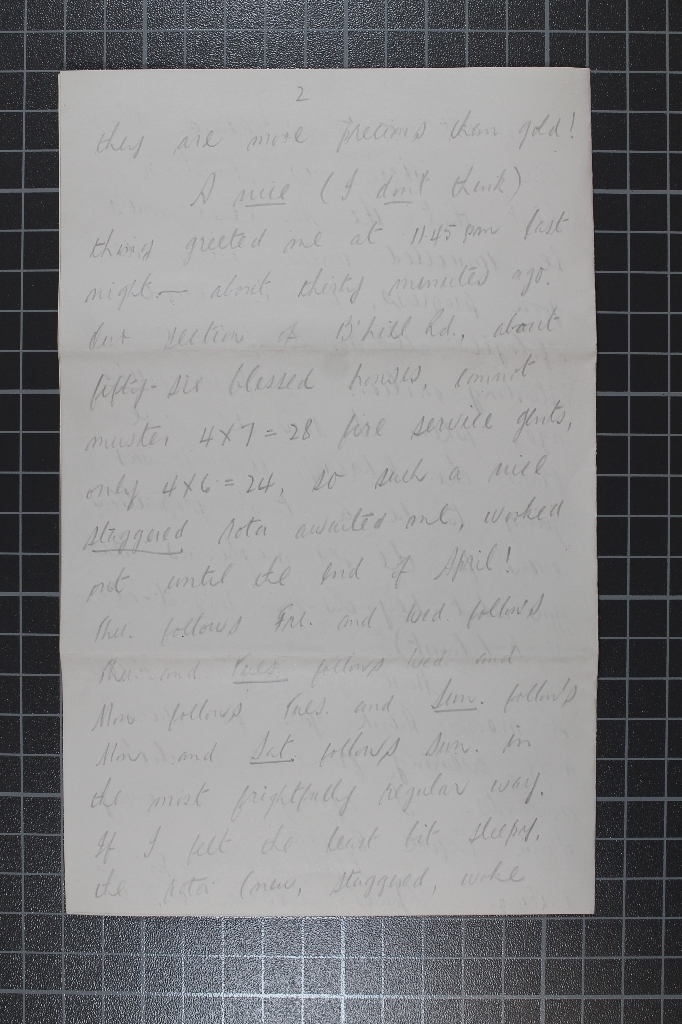 2
they are more precious than gold!
A nice (I don't think)
thing greeted me at 11.45 pm last
night — about thirty minutes ago.
Our section of B'hill Rd., about
fifty-six blessed houses, cannot
muster 4 x 7 = 28 fire service gents,
only 4 x 6 = 24, so such a nice
staggered rota awaited me, worked
out until the end of April!
Thu. follows Fri. and Wed. follows
Thu. and Tues. follows Wed and
Mon follows Tues. and Sun. follows
Mon. and Sat. follows Sun. in
the most frightfully regular way.
If I felt the least bit sleepy,
the rota (new, staggered, woke